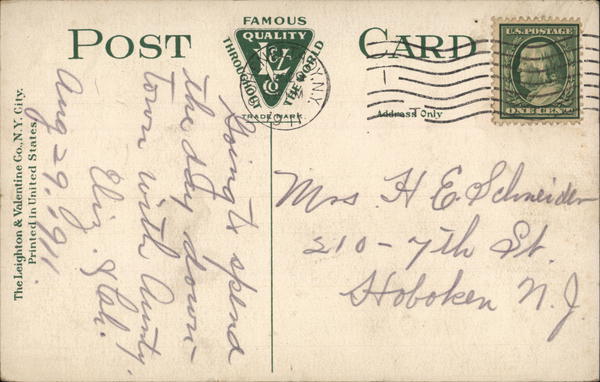 POST CARD
FAMOUS
QUALITY
L&V
Co
THROUGHOUT THE WORLD
TRADE MARK.
N.Y.
1911
U.S. POSTAGE
ONE CENT
Address Only
The Leighton & Valentine Co., N.Y. City.
Printed in United States.
Going to spend
the day down-
town with Aunty,
Eliz. &
Aug 29, 1911.
Mrs H E. Schneider
210-7th St.
Hoboken N.J.